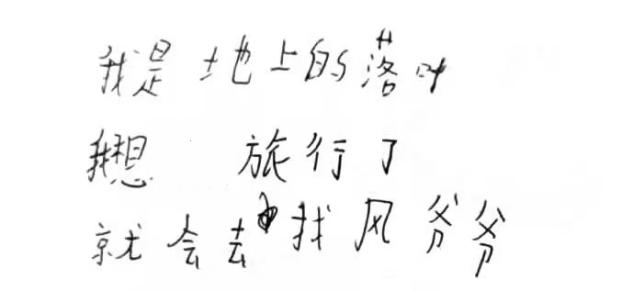 我是地上的落叶
我想 旅行了
就会去找风爷爷